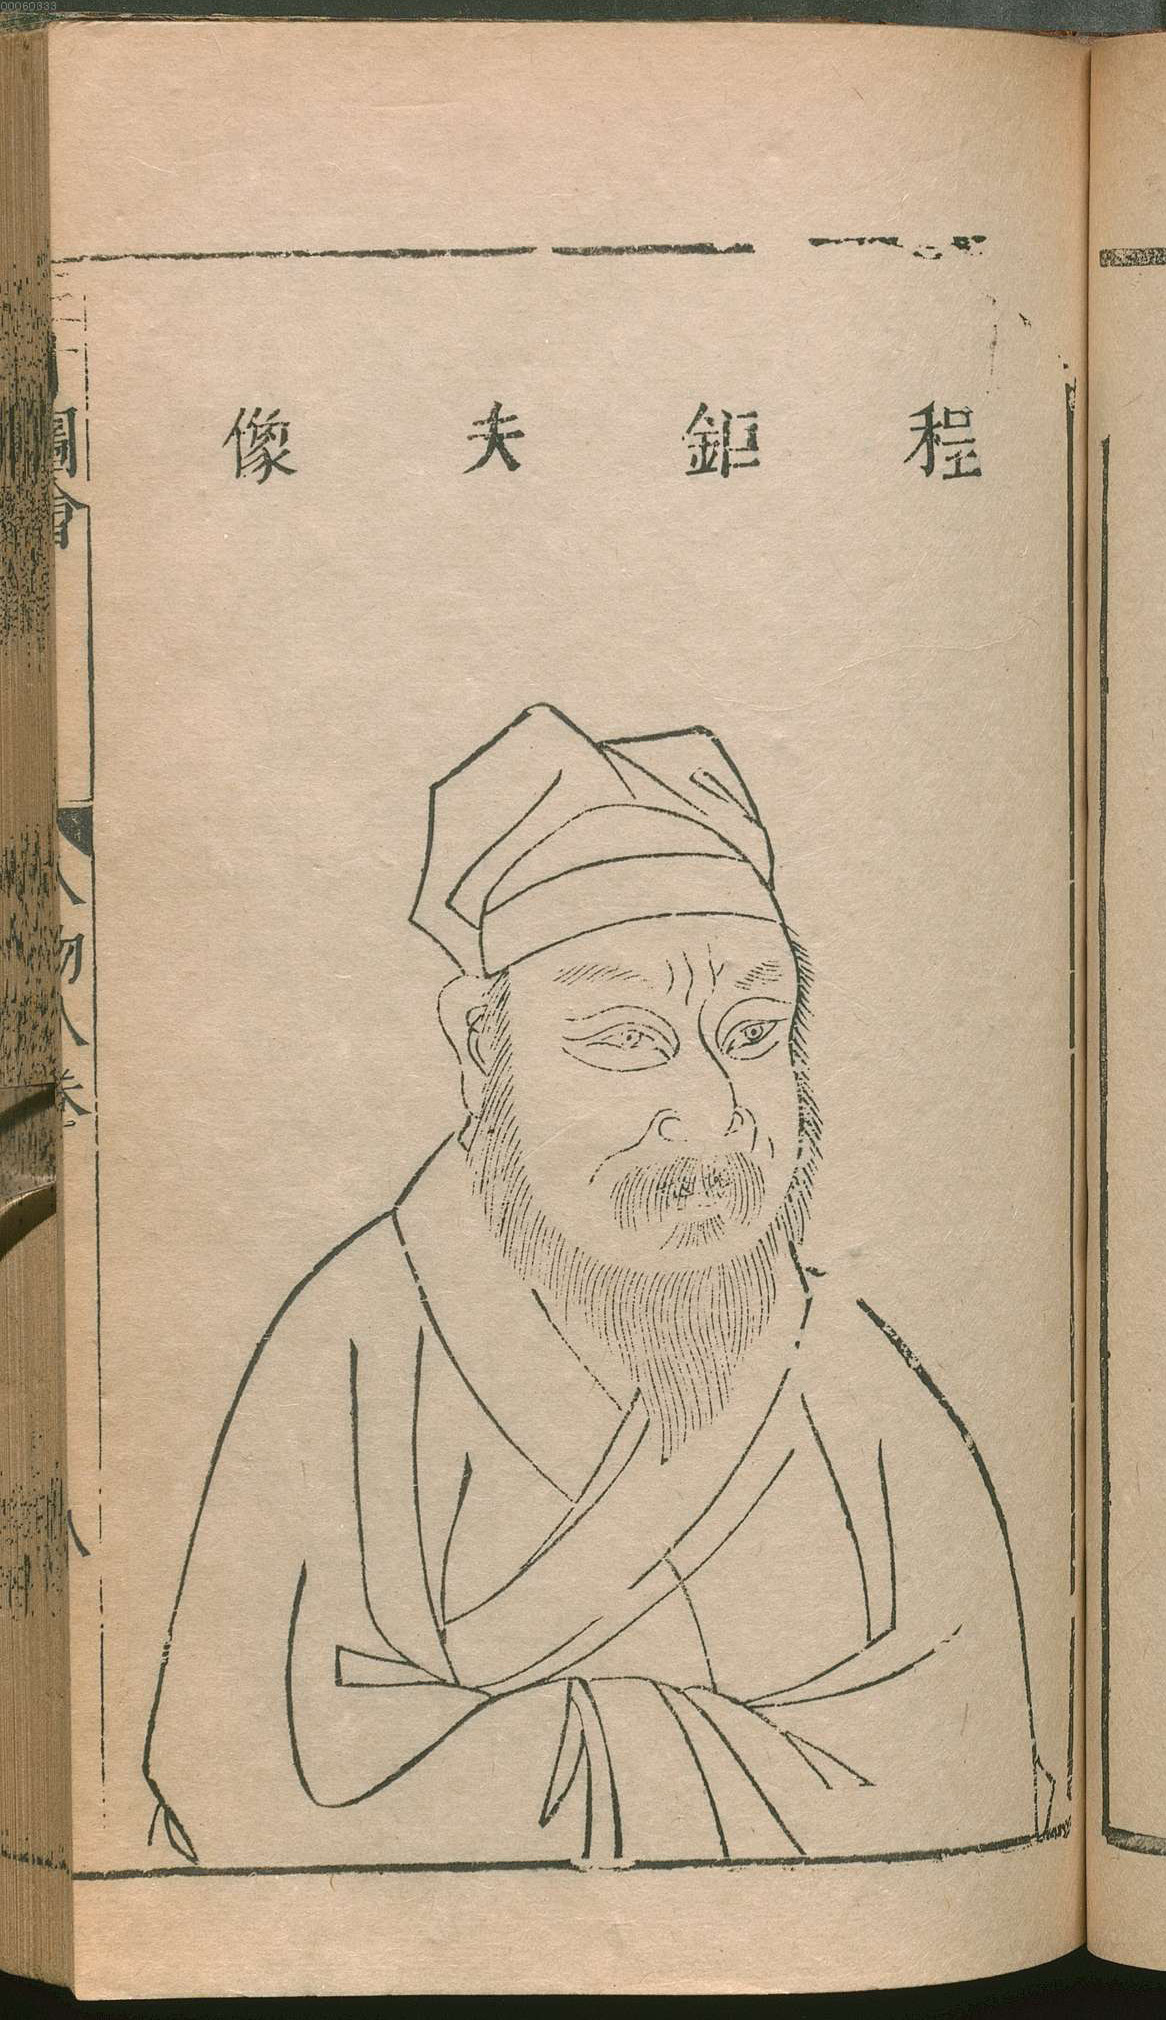 00060333
程鉅夫像
圖會
人物八卷
八